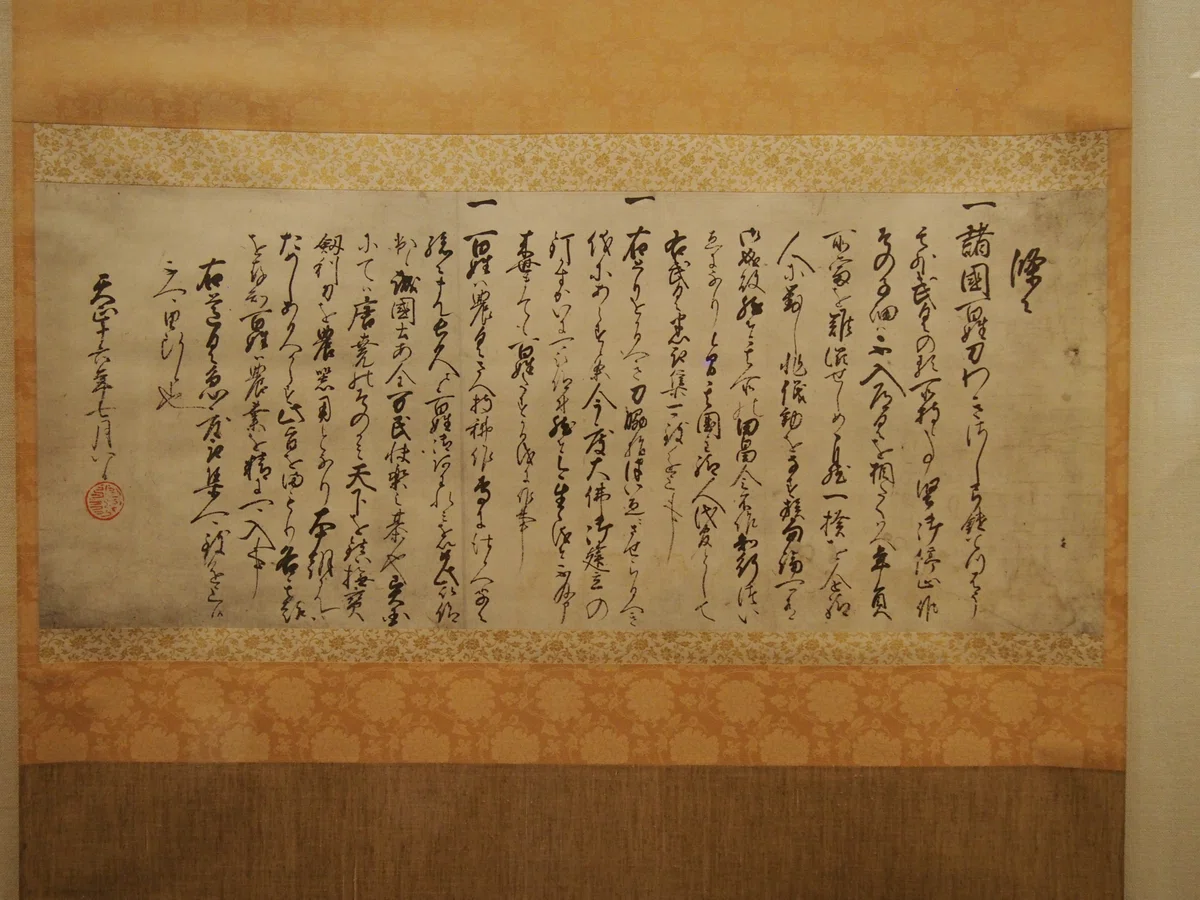 條々
一 諸國百姓刀わきさし弓鑓てつはう
其外武具の類所持候事堅御停止候
その子細ハ不入道具を相たくハへ年貢
所當を難澁せしめ自然一揆を企給
人に對し非儀働をなす族勿論可有
御成敗然ハ其所の田畠令不作知行つい
ゑになり候間其國主給人代官として
右武具悉取集可致進上事
一 右とりをかるへき刀脇指ついゑニさせらるへき
儀にあらす候今度大佛御建立の
釘かすかいに可被仰付然ハ今生儀ハ不及申
来世まても百姓たすかる儀に候事
一 百姓ハ農具さへ持耕作専に仕候へハ子々
孫々まて長久ニ候百姓御あハれミを以如此被仰
出候誠國土安全万民快楽之基也異國
にてハ唐堯のそのかミ天下を鎮撫寳
劔利刀を農器に用と也本朝にてハ
ためしあるへからす此旨を守り各其趣
を存知百姓ハ農業を精に可入事
右道具急度取集可致進上候
不可由断候也
天正十六年七月八日